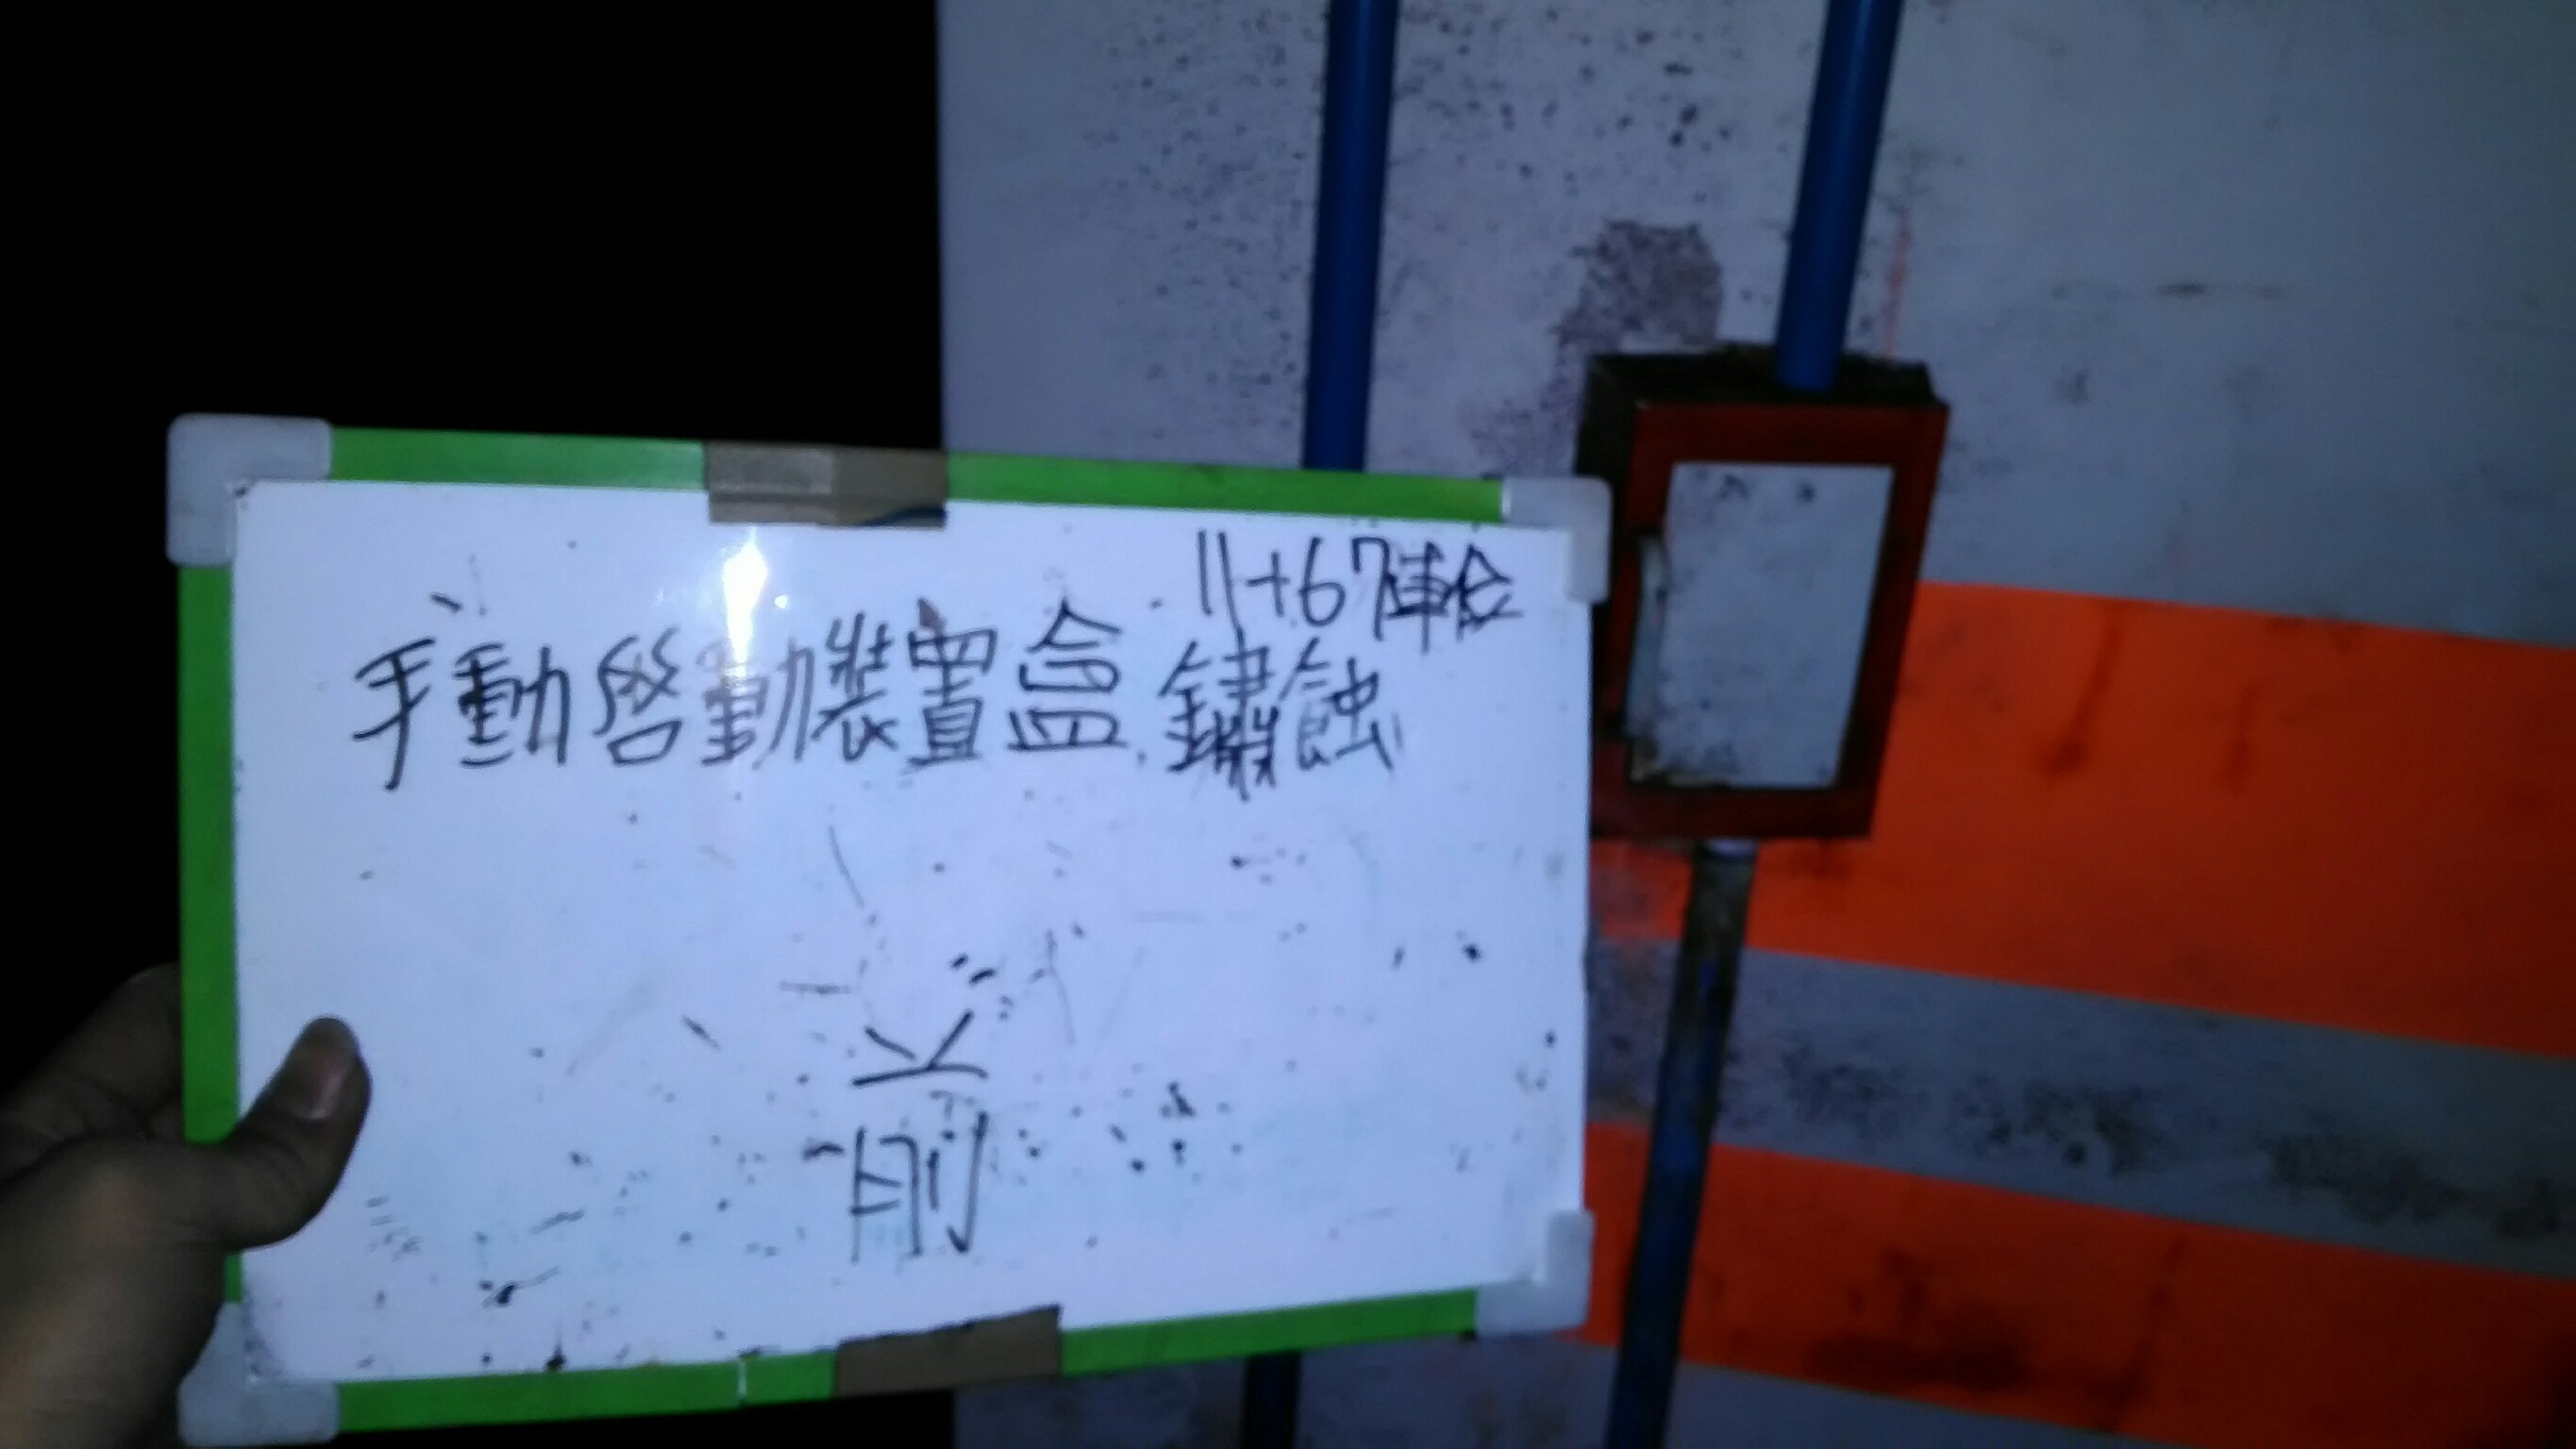 11+67車
手動啓動裝置盒鏽蝕
前